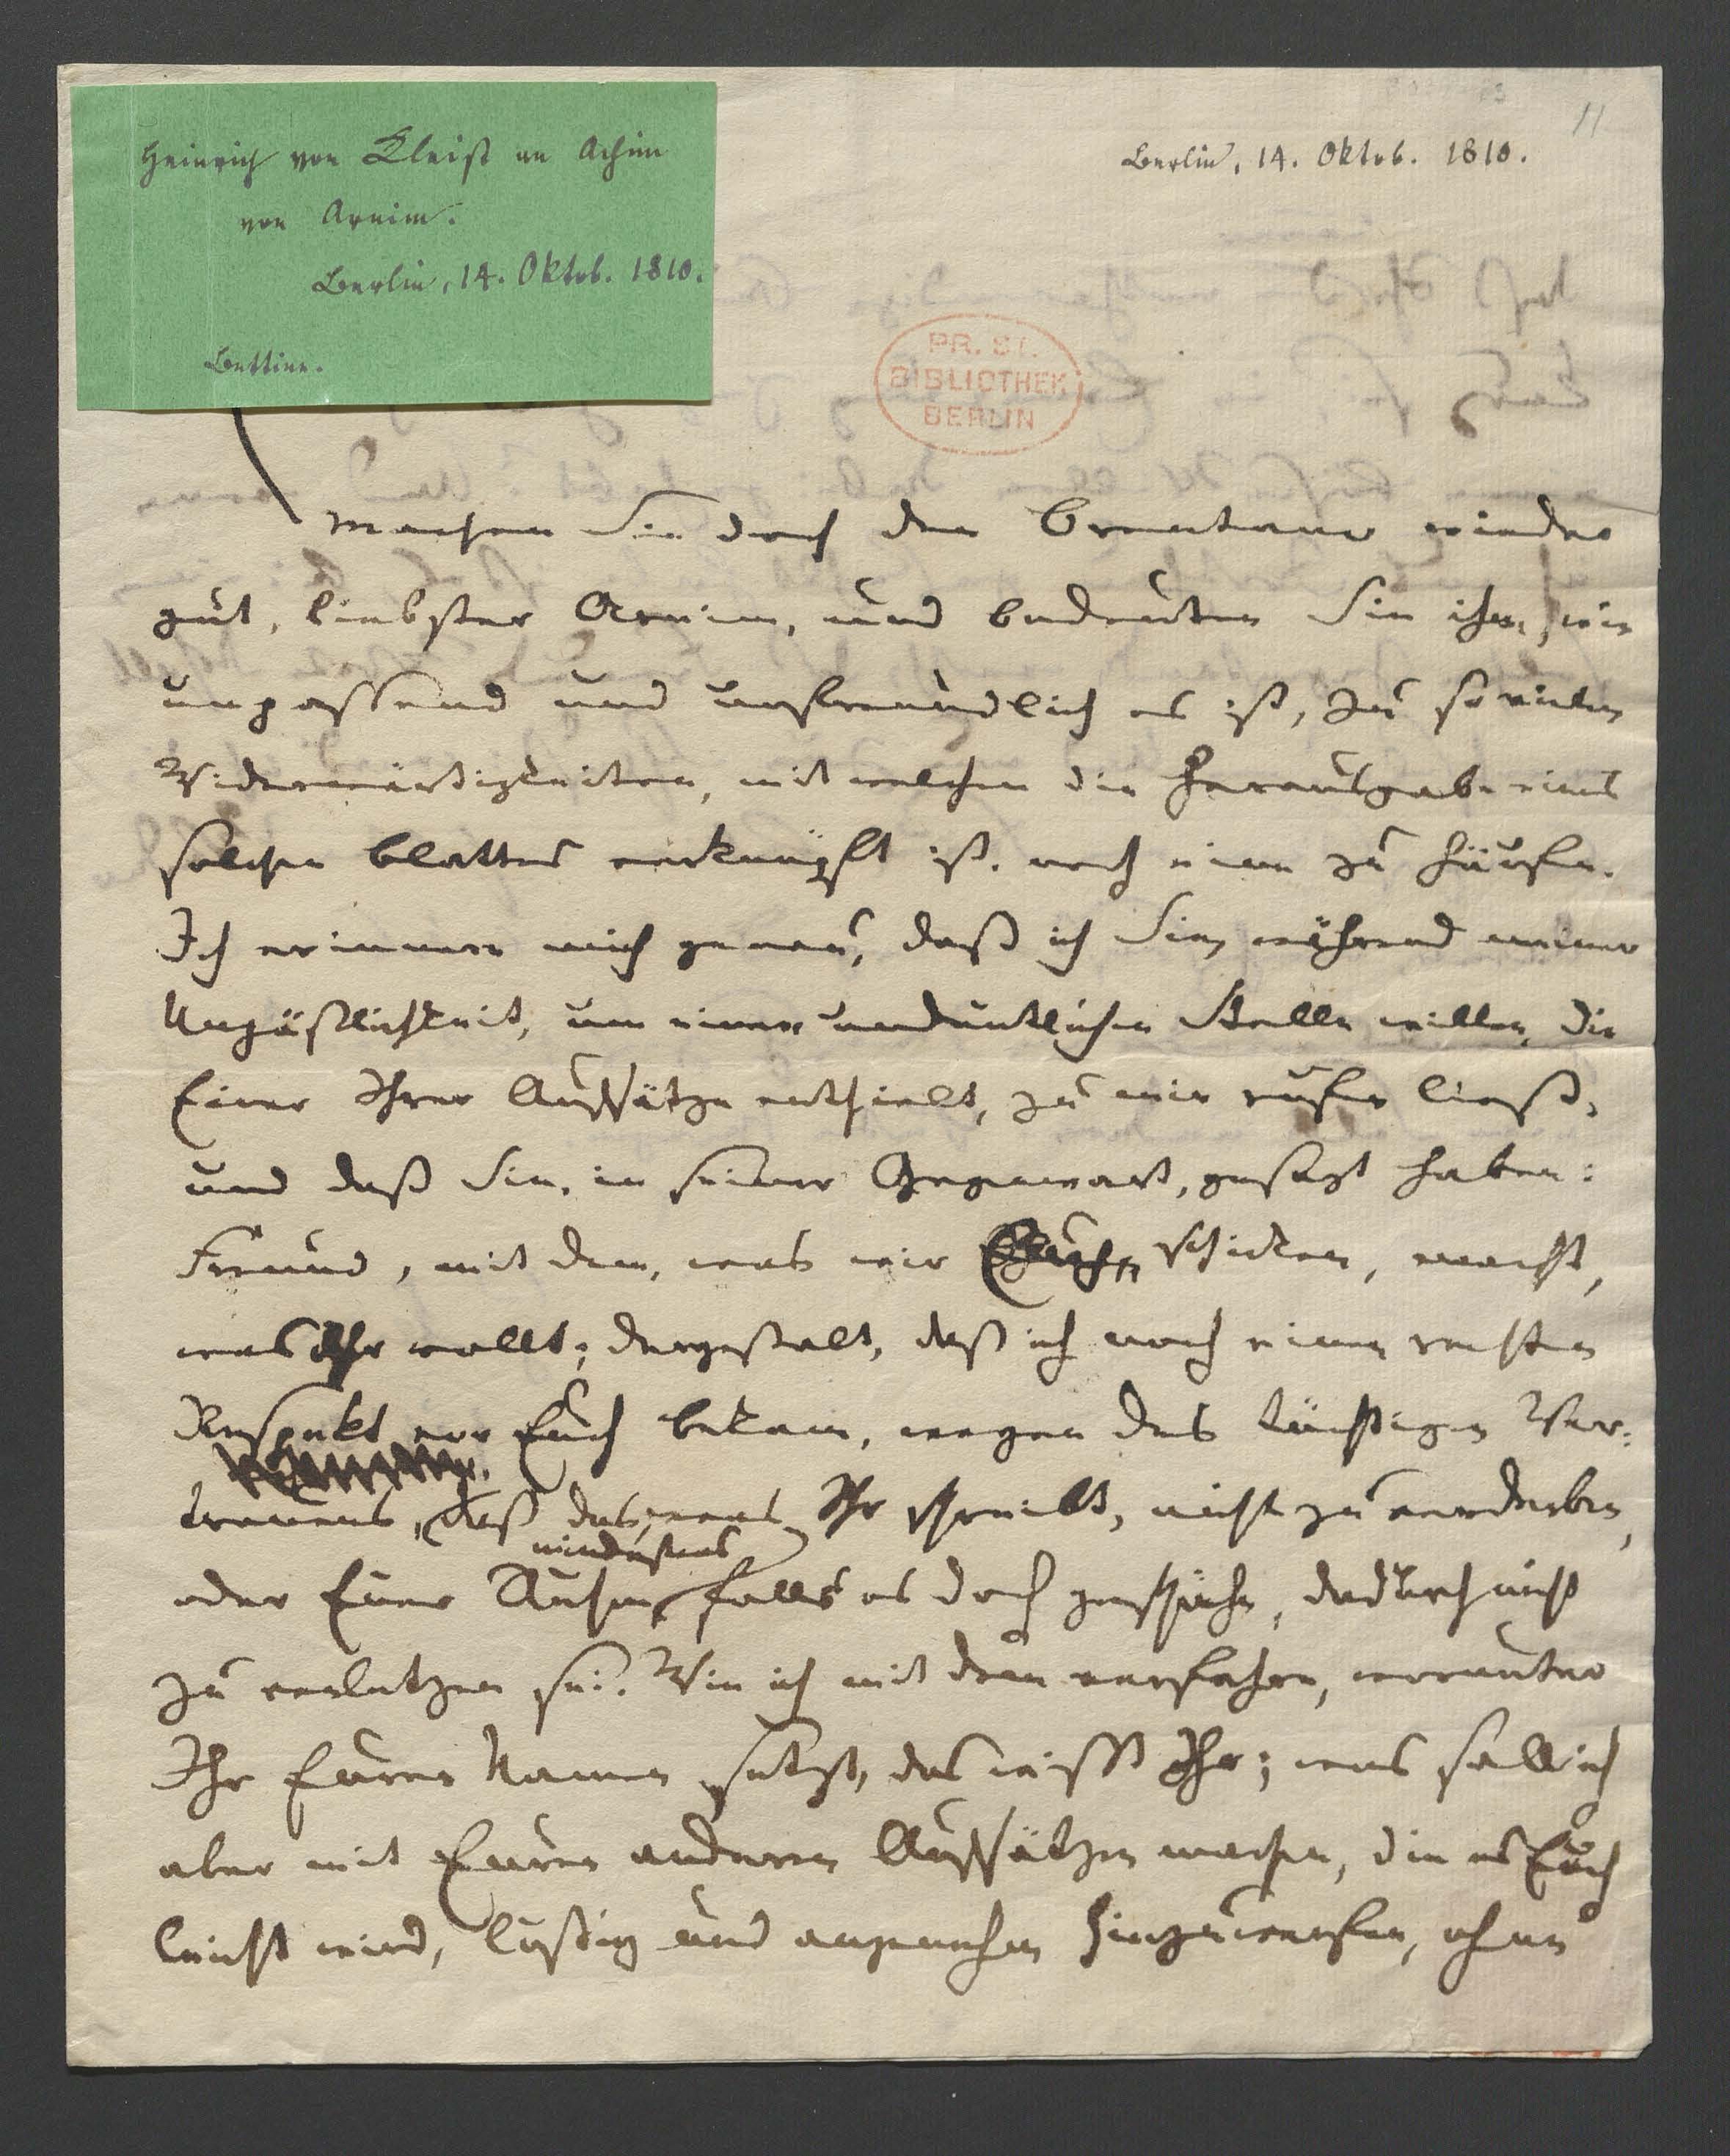 Heinrich von Kleist an Achim
von Arnim.
Berlin, 14. Oktob. 1810.
Bettine.
11
Berlin, 14. Oktob. 1810.
PR. ST.
BIBLIOTHEK
BERLIN
Machen Sie doch den Brentano wieder
gut, liebster Arnim, und bedeuten Sie ihm, wie
unpassend und unfreundlich es ist, zu so vielen
Widerwärtigkeiten, mit welchen die Herausgabe eines
solchen Blattes verknüpft ist, noch eine zu häufen.
Ich erinnere mich genau, daß ich Sie, während meiner
Unpäßlichkeit, um einer undeutlichen Stelle willen, die
Einer Ihrer Aufsätze enthielt, zu mir rufen ließ,
und daß Sie, in seiner Gegenwart, gesagt haben:
Freund, mit dem, was wir Euch schicken, macht,
was Ihr wollt; dergestalt, daß ich noch einen rechten
Respekt vor Euch bekam, wegen des tüchtigen Ver-
trauens, daß das, was Ihr schreibt, nicht zu verderben,
mindestens
oder Euer Ruhm, falls es doch geschähe, dadurch nicht
zu verletzen sei. Wie ich mit dem verfahre, worunter
Ihr Euren Namen setzt, das wißt Ihr; was soll ich
aber mit Euren anderen Aufsätzen machen, die es Euch
leicht wird, lustig und angenehm hinzuwerfen, ohne